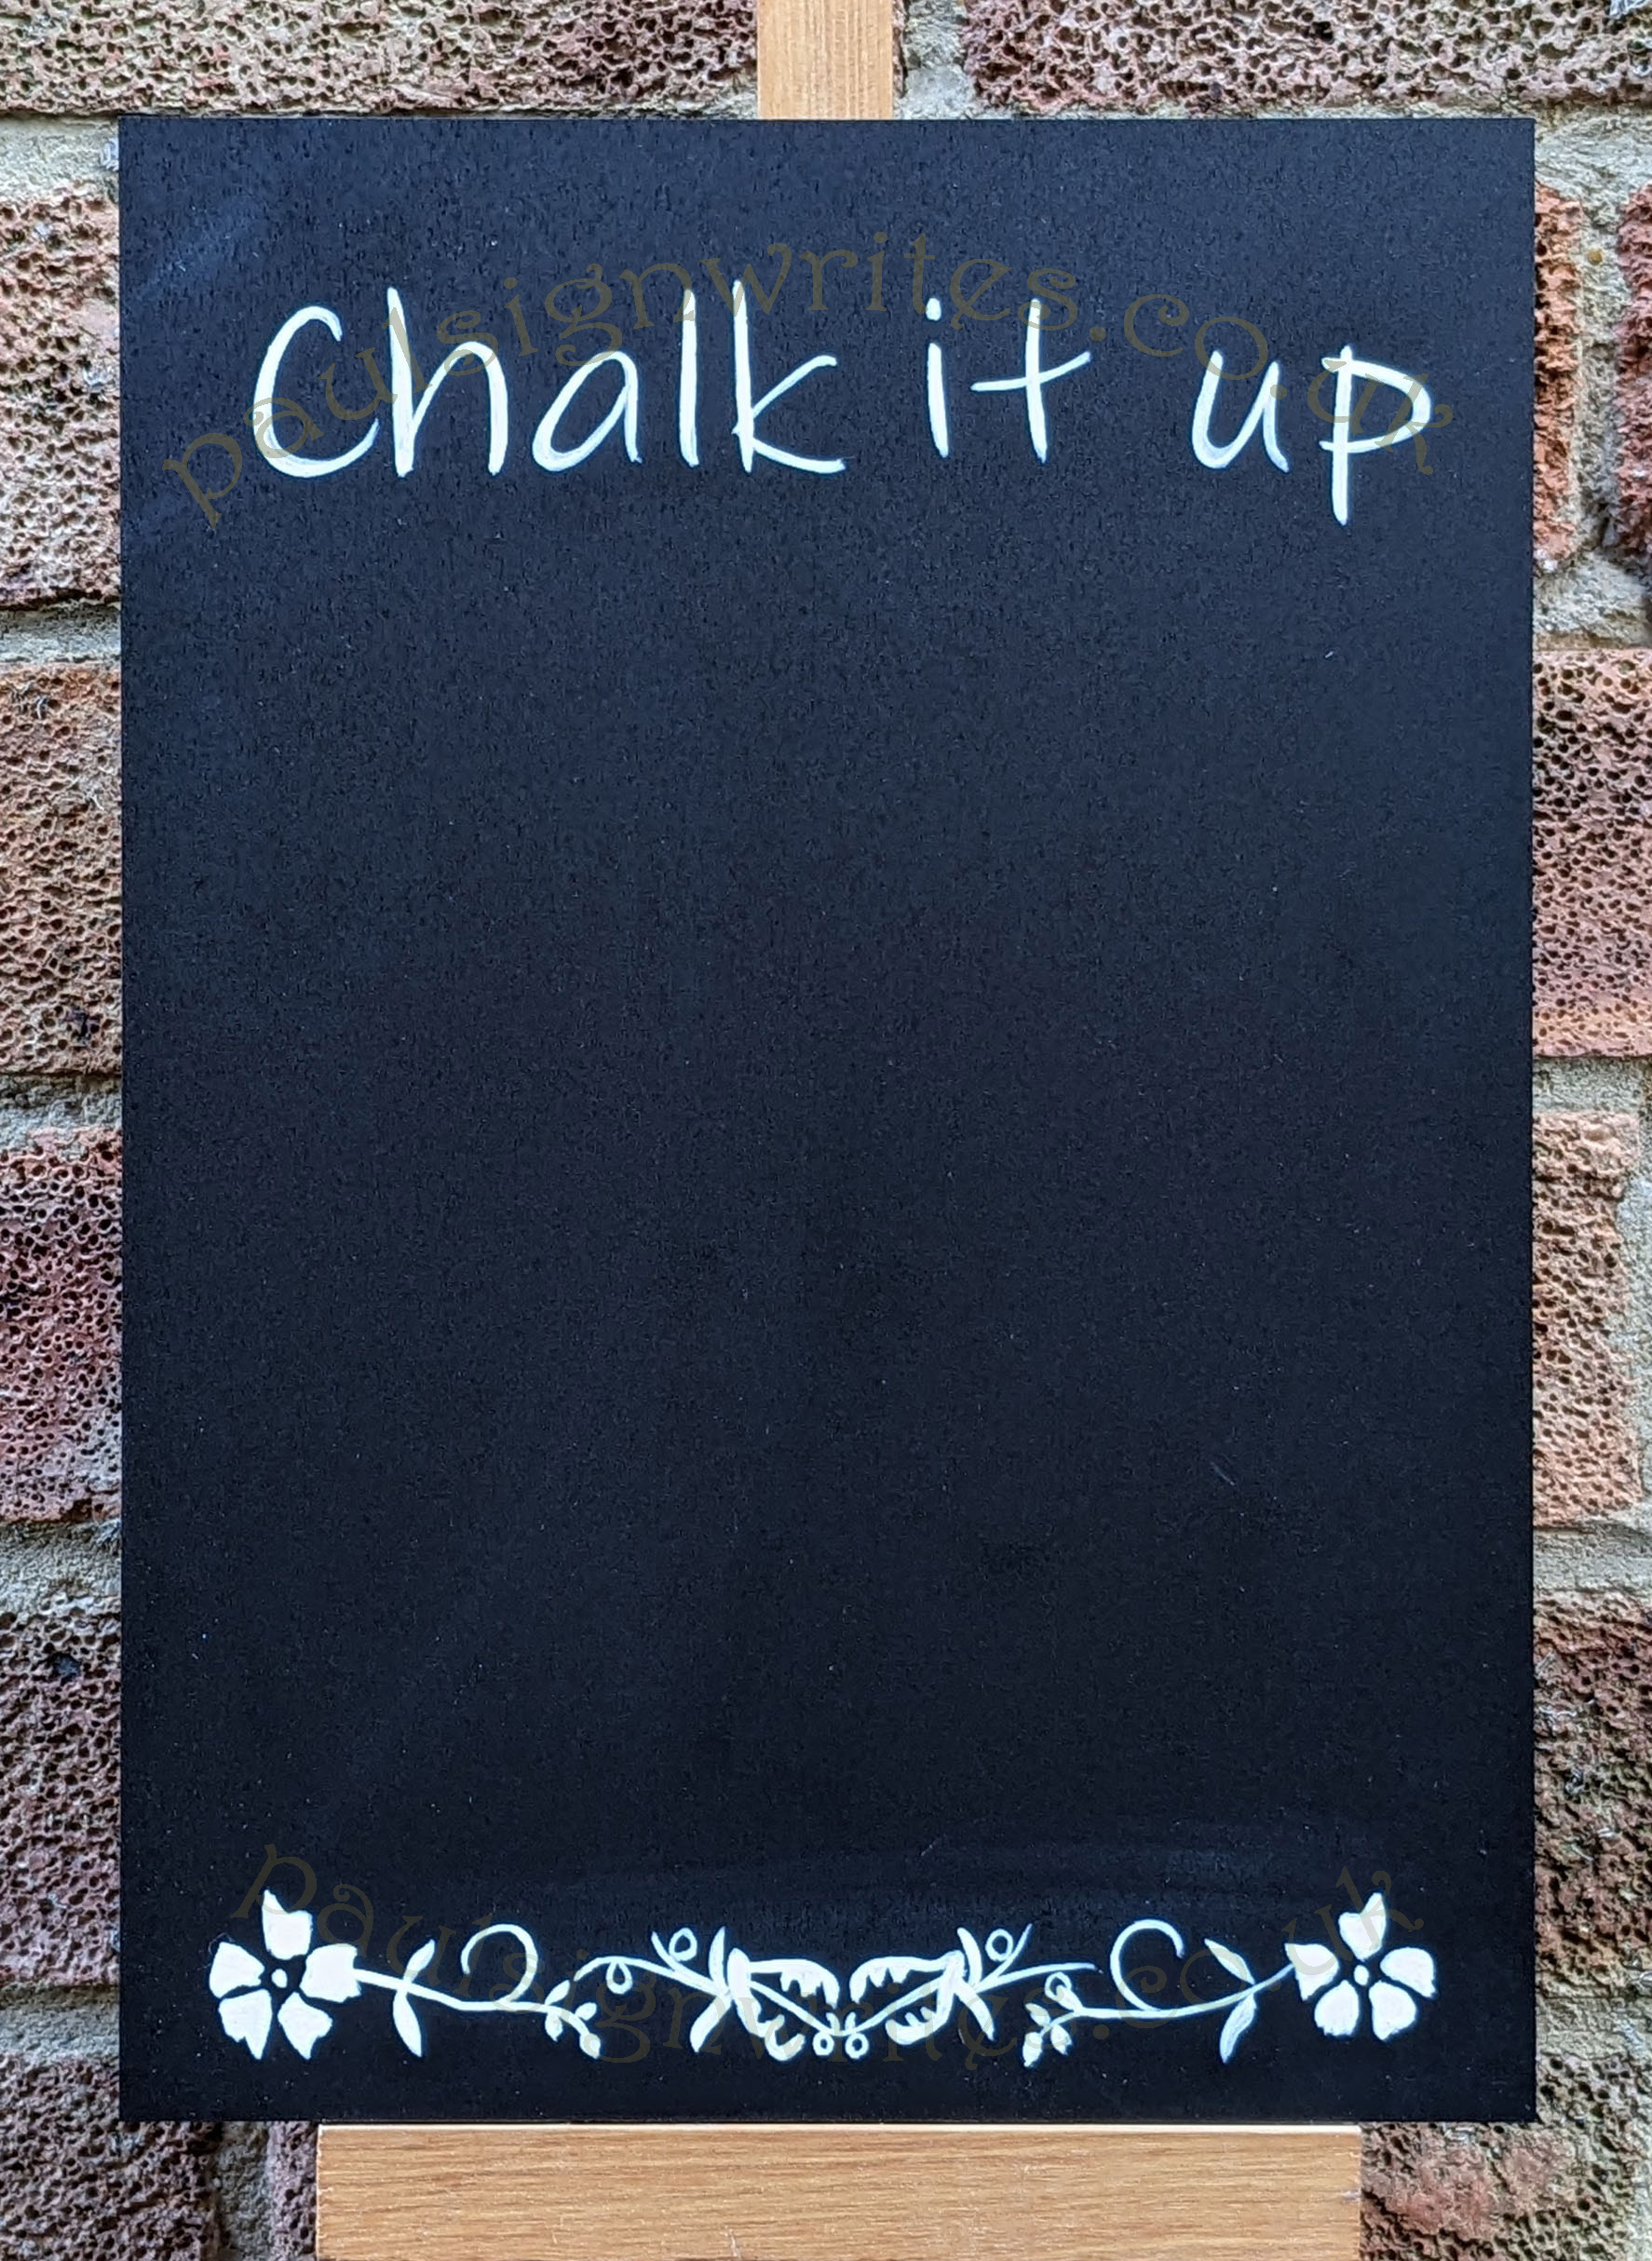 paulsignwrites.co.uk
Chalk it up
paulsignwrites.co.uk